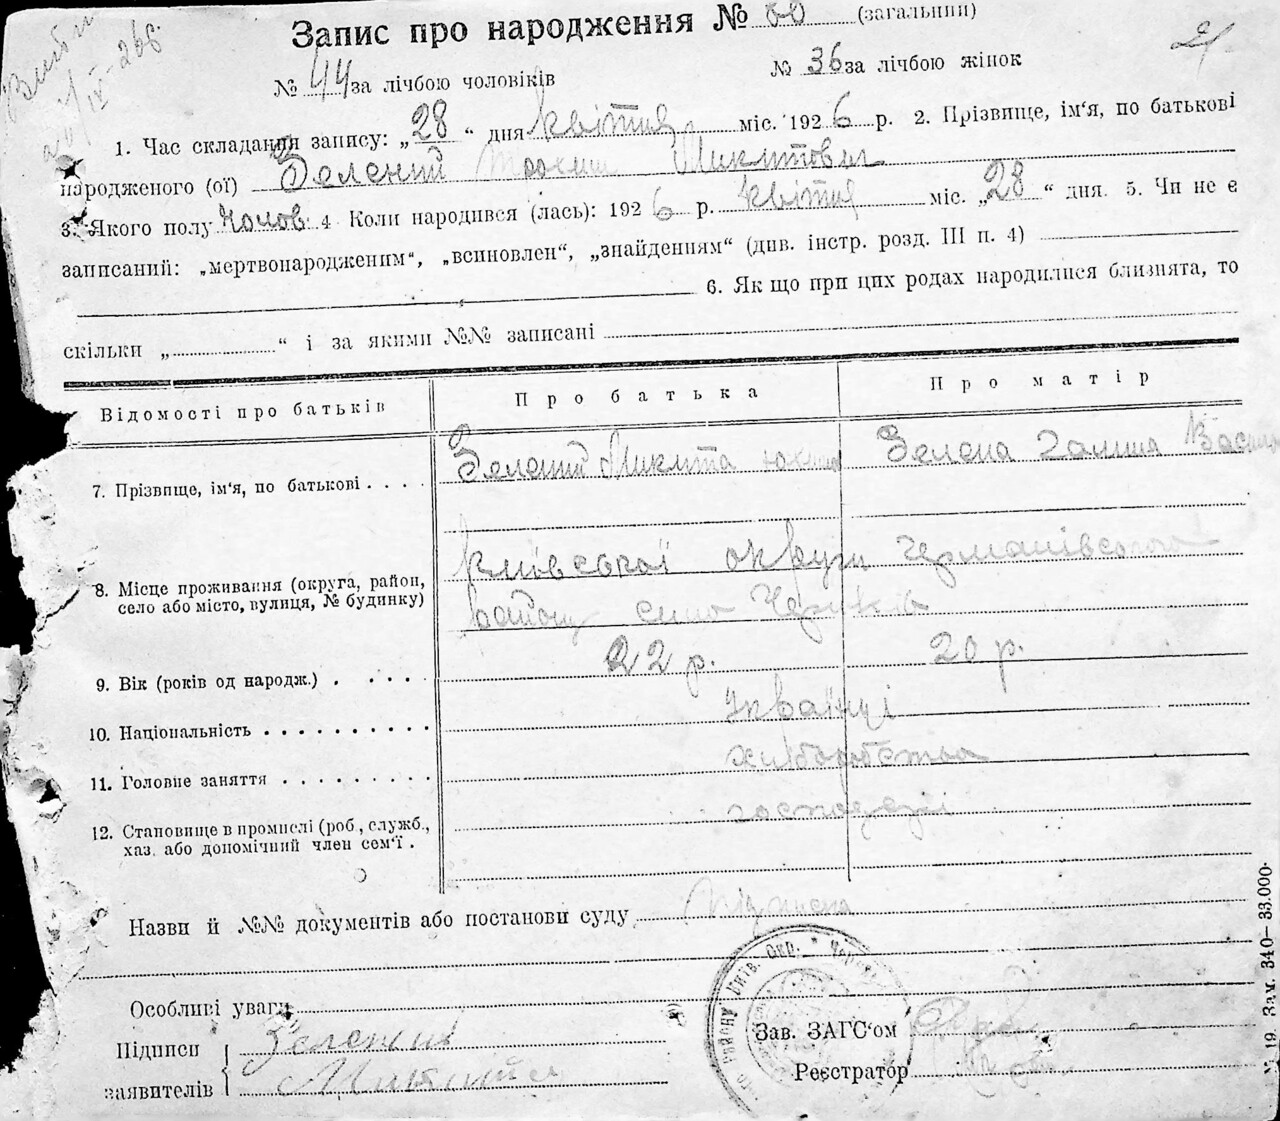 Запис про народження № 80 (загальний)
21
№ 44 за лічбою чоловіків № 36 за лічбою жінок
1. Час складання запису: „28“ дня квітня міс. 1926 р. 2. Прізвище, ім'я, по батькові
народженого (ої) Зелений Трохим Микитович
3. Якого полу Чолов. 4 Коли народився (лась): 1926 р. квітня міс. „28“ дня. 5. Чи не є
записаний: „мертвонародженим“, „всиновлен“, „знайденням“ (див. інстр. розд. III п. 4)
6. Як що при цих родах народилися близнята, то
скільки „ “ і за якими №№ записані
Відомості про батьків Про батька Про матір
7. Прізвище, ім'я, по батькові . . . . Зелений Микита Юхим Зелена Галина Васил
8. Місце проживання (округа, район, Київської округи Германівського
село або місто, вулиця, № будинку) району село
9. Вік (років од народж.) . . . . . 22 р. 20 р.
10. Національність . . . . . . . . . . Українці
11. Головне заняття . . . . . . . . . хліборобство
12. Становище в промислі (роб., служб., господарі
хаз. або допомічний член сем'ї .
Назви й №№ документів або постанови суду Підписка
Особливі уваги
Підписи Зелений
заявителів Микита
Зав. ЗАГС'ом
Реєстратор
19 Зам. 340—33.000.